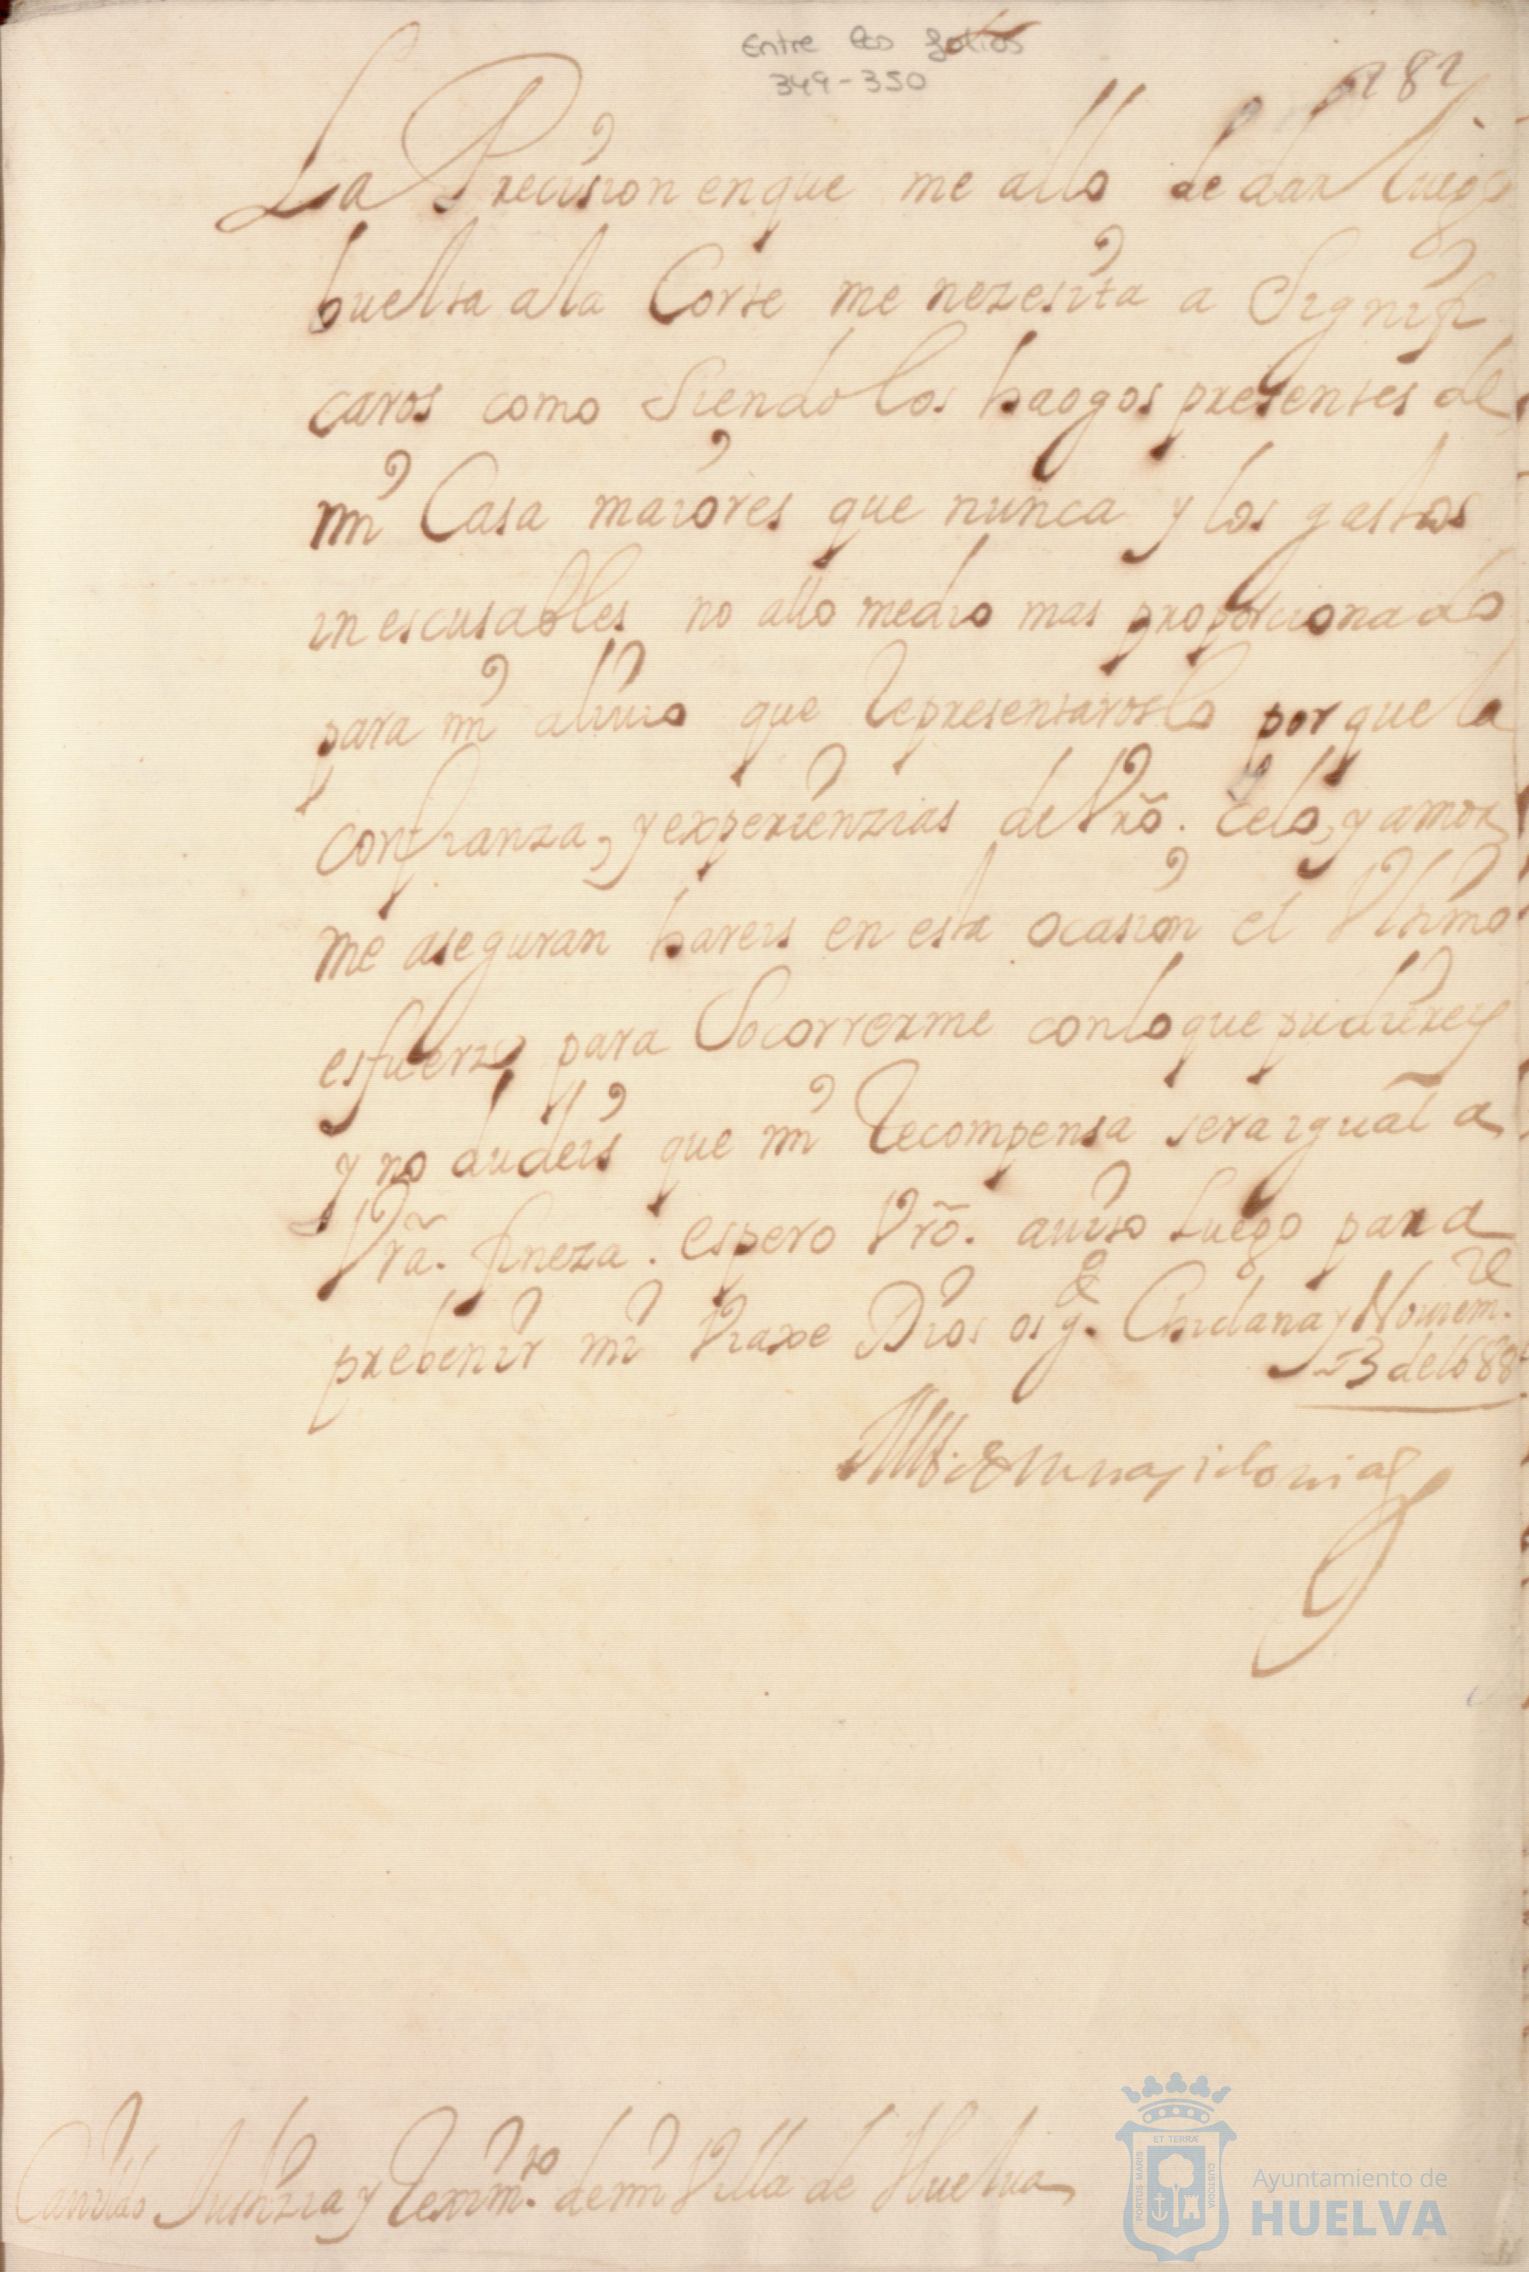 Entre los folios
349-350
282
La Precision enque me allo de dar luego
buelta ala Corte me nezesita a Signifi
caros como Siendo los haogos presentes de
mi Casa maiores que nunca y los gastos
inescusables no allo medio mas proporcionado
para mi aliuio que Representaroslo porque la
confianza, y experienzias de Vrõ. Celo, y amor
me aseguran hareis en esta ocasion el Vltimo
esfuerzo para Socorrerme conlo que pudiereis
y no dudeis que mi Recompensa sera igual a
Vrã. fineza. espero Vrõ. auiso Luego para
prebenir mi Viaxe Dios os g.e Chiclana y Nouiem.re
3 de 1688
Cauildo Justizia y Reximto. demi Villa de Huelua
PORTUS MARIS
ET TERRÆ
CUSTODIA
Ayuntamiento de
HUELVA